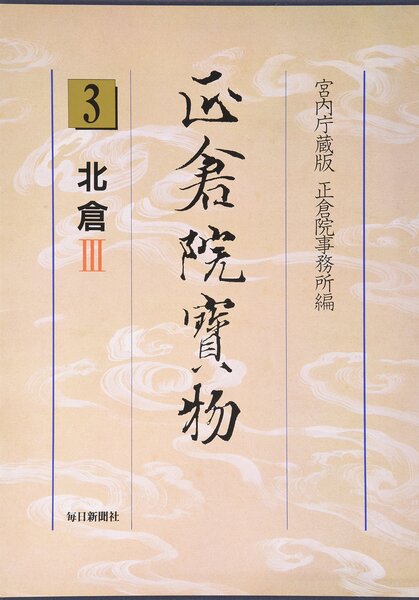 宮内庁蔵版 正倉院事務所編
正倉院寶物
3
北倉Ⅲ
毎日新聞社